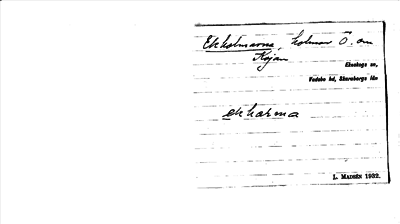 Ekholmarna, holmar Ö. om
Kojan
Ekeskogs sn,
Vadsbo hd, Skaraborgs län
ekholma
L. MADSÉN 1932.